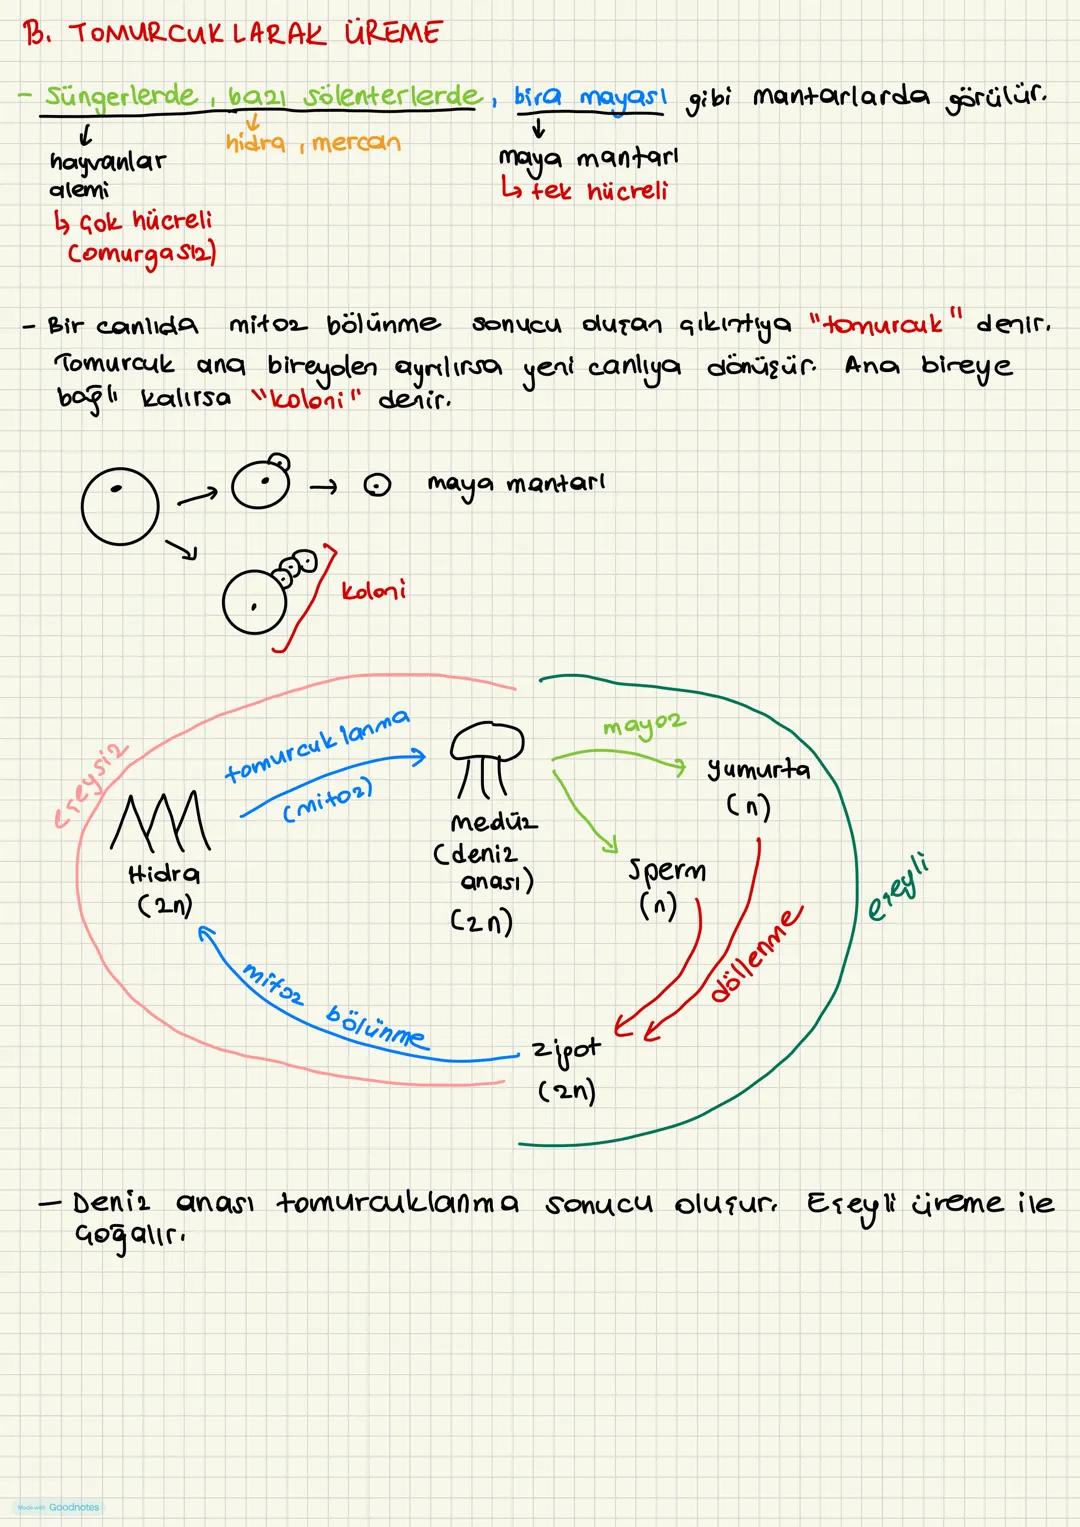 B. TOMURCUKLARAK ÜREME
- Süngerlerde, bazı sölenterlerde, bira mayası gibi mantarlarda görülür.
hidra, mercan
hayvanlar
alemi
↳ çok hücreli
(omurgasız)
maya mantarı
↳ tek hücreli
- Bir canlıda mitoz bölünme sonucu oluşan çıkıntıya "tomurcuk" denir.
Tomurcuk ana bireyden ayrılırsa yeni canlıya dönüşür. Ana bireye
bağlı kalırsa "koloni" denir.
maya mantarı
koloni
eşeysiz
tomurcuklanma
(mitoz)
mayoz
yumurta
(n)
Hidra
(2n)
medüz
(deniz
anası)
(2n)
sperm
(n)
eşeyli
döllenme
mitoz bölünme
zigot
(2n)
- Deniz anası tomurcuklanma sonucu oluşur. Eşeyli üreme ile
çoğalır.
Made with Goodnotes